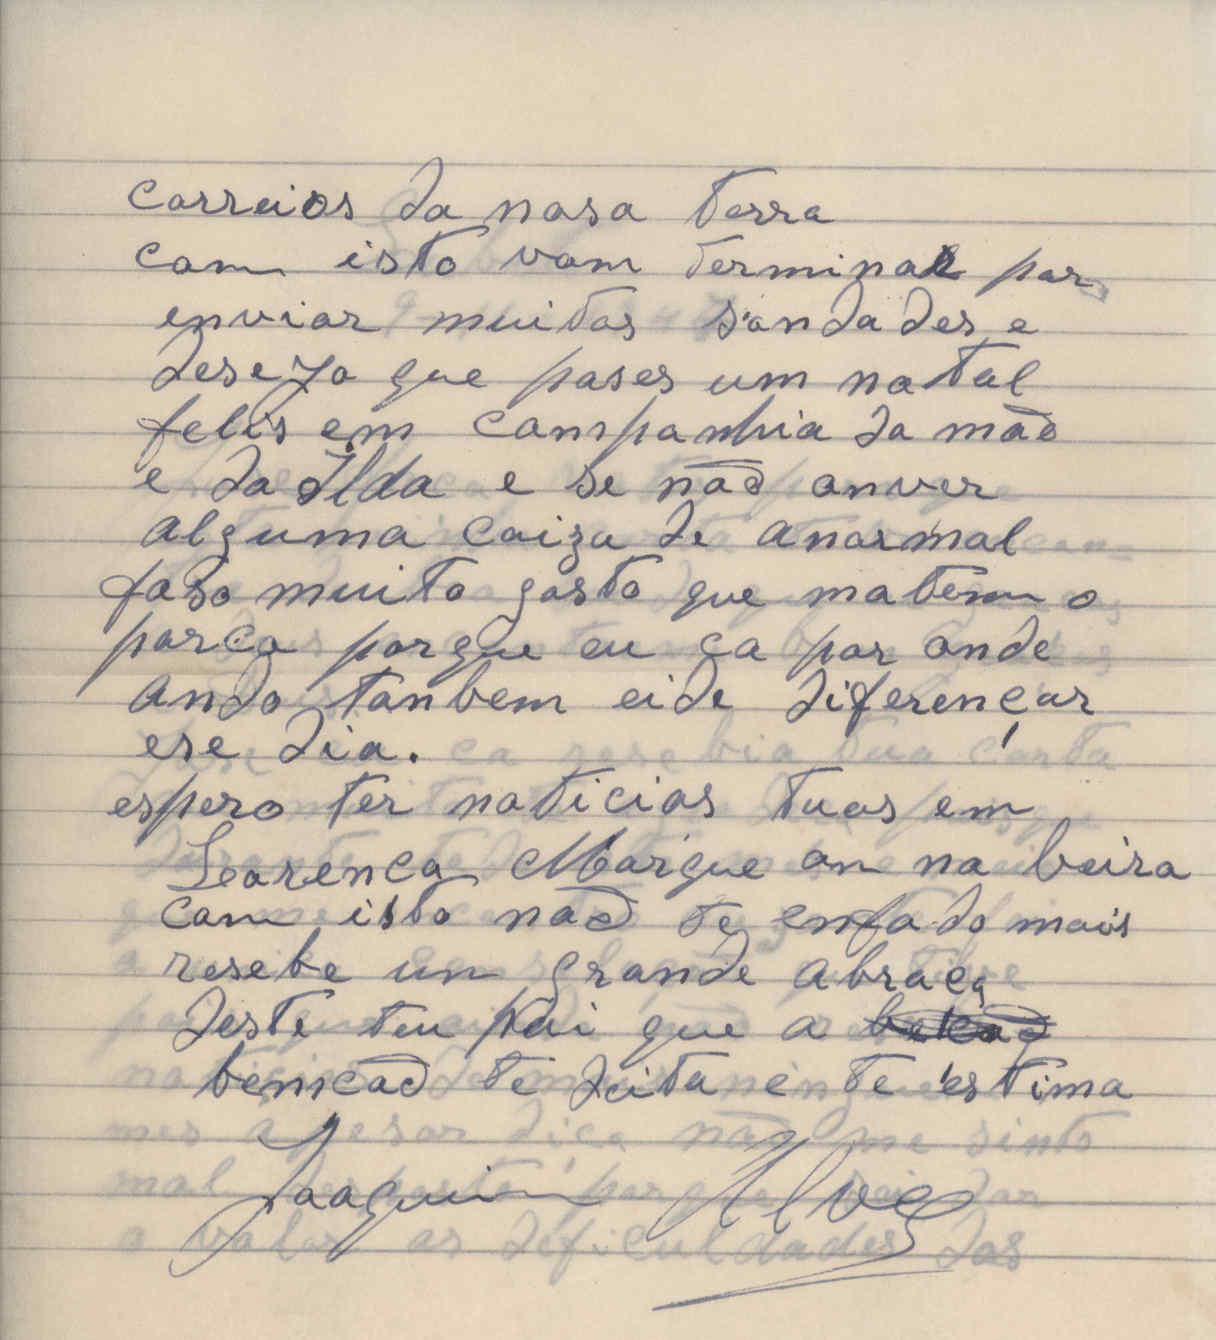 correios da nosa terra
com isto vom terminar por
enviar muitas saudades e
desejo que pases um natal
felis em companhia da mão
e da Ilda e se não ouver
alguma coiza de anormal
faso muito gosto que matem o
porco porque eu ca por onde
ando tanbem eide diferençar
ese dia.
espero ter noticias tuas em
Lorenco Marque ou na beira
com isto não te enfado mais
resebe un grande abraço
deste teu pai que a
bencão te deita e te estima
Joaquim Alves